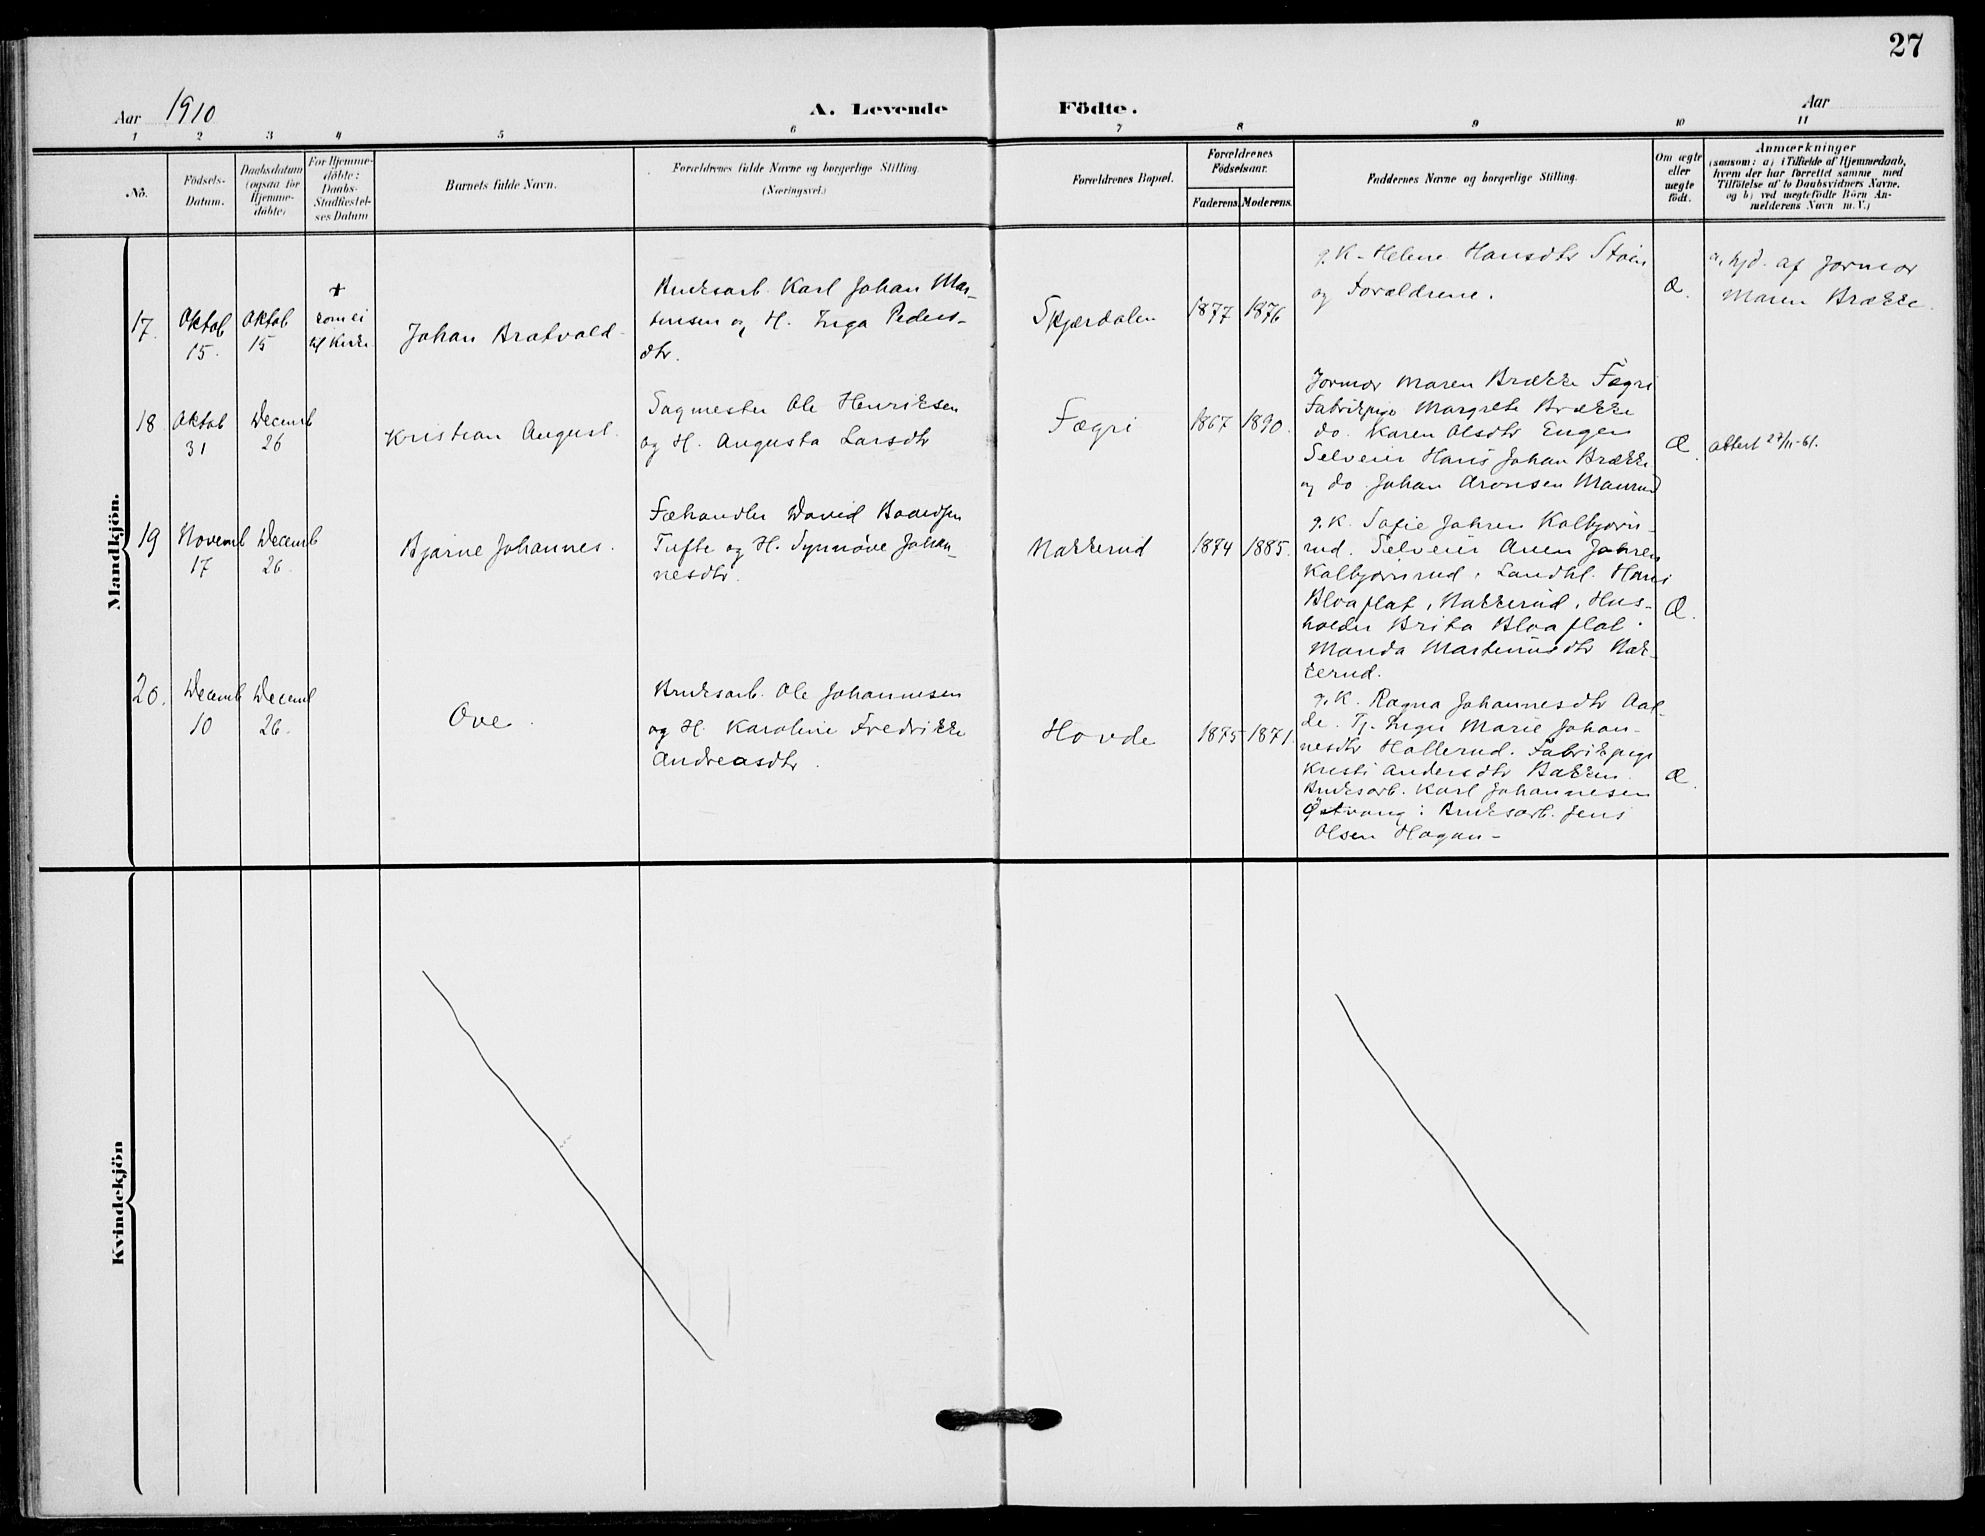 27
Aar 1910
A. Levende Födte.
Aar
1 2 3 4 5 6 7 8 9 10 11
No.
Födsels-
Datum.
Daabsdatum
(ogsaa for
Hjemme-
döbte)
For Hjemme-
döbte:
Daabs-
Stadfæstel-
ses Datum
Barnets fulde Navn.
Forældrenes fulde Navne og borgerlige Stilling
(Næringsvei.)
Forældrenes Bopæl.
Forældrenes
Födselsaar.
Faderens. Moderens.
Faddernes Navne og borgerlige Stilling.
Om ægte
eller
uægte
födt.
Anmærkninger
(saasom: a) i Tilfælde af Hjemmedaab,
hvem der har forrettet samme, med
Tilföielse af to Daabsvidners Navne,
og b) ved uægtefödte Börn An-
melderens Navn m. V.)
Mandkjön.
17.
Oktob
15.
Oktob
15
+
kom ei
til Kirke
Johan Bratvald
Bruksarb. Karl Johan Mar-
tinsen og H. Inga Peders-
dtr.
Skjærdalen
1877 1876
g.K. Helene Hansdtr Støen
og Forældrene.
Æ.
a, hjd. af Jormor
Maren Brække.
18
Oktob
31
Decemb
26
Kristian August.
Sagmester Ole Henriksen
og H. Augusta Larsdtr
Fægri
1867 1890.
Jormor Maren Brække Fægri
Fabrikpige Margrete Brække
do. Karen Olsdtr Engen
Selveier Hans Johan Brække
og do. Johan Aronsen Maurud
Æ.
attest 27/11-61.
19
Novemb
17
Decemb
26.
Bjarne Johannes.
Fæhandler David Baardsen
Tufte og H. Synnøve Johan-
nesdtr.
Nakkerud
1874 1885.
g.K. Sofie Jahren Kolbjørns-
rud. Selveier Auen Jahren
Kolbjørnsrud, Landhl. Hans
Blaaflat, Nakkerud, Hus-
holder Brita Blaaflat.
Manda Martinusdtr Nak-
kerud.
Æ.
20.
Decemb
10
Decemb
26.
Ove.
Bruksarb. Ole Johannesen
og H. Karoline Fredrikke
Andreasdtr.
Hovde
1875 1871.
g.K. Ragna Johannesdtr Aal-
de. Tj. Inger Marie Johan-
nesdtr Hollerud. Fabrikpige
Kristi Andersdtr Bakken.
Bruksarb. Karl Johannesen
Østvang: Bruksarb. Jens
Olsen Hagan-
Æ.
Kvindekjön